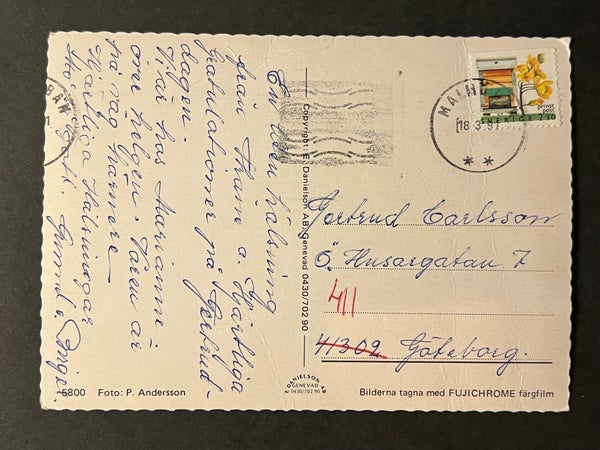 En liten hälsning
från Tham o. Hjärtliga
Gratulationer på Gertrud-
dagen.
Vi är hos Marianne
över helgen. Våren är
på väg härnere.
Hjärtliga Hälsningar
Gunnel o. Inge.
Copyright: E. Danielson AB, Genevad 0430/702 90
MALMÖ
18.3.91
* *
SVERIGE 2.30
Gertrud Carlsson
Ö. Husargatan 7
411
41302 Göteborg.
5800 Foto: P. Andersson
DANIELSON AB
GENEVAD
0430/702 90
Bilderna tagna med FUJICHROME färgfilm